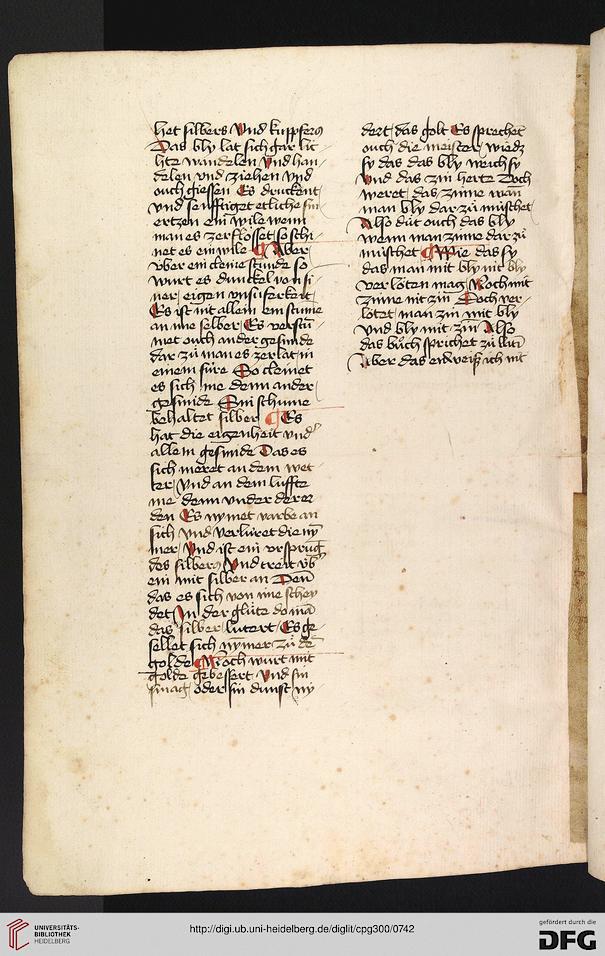 het silbers Vnd kuppfers
Das bly lat sich gar lic
htz wandelen Vnd han
delen vnd ziehen vnd
ouch giessen Es druckent
vnd senfftiget etliche sin
ertzen ein wile wenn
man es zerflosset so schi
net es ein wile Aber
vber ein cleine stunde so
wurt es dunckel von si
ner eigen vnsufferkeit
Es ist nit allem ein stume
an ime selber Es verstu
met ouch ander gesmide
dar zu man es zerlat in
einem füre So cleinet
es sich me denn ander
gesmide Sin schume
behaltet silber Es
hat die eigenheit vnd
allem gesmide Das es
sich meret an dem wet
ter Vnd an dem luffte
me denn vnder der er
den Es nymet varbe an
sich vnd verluret die ny
mer Vnd ist ein vrsprug
des silbers Vnd treit vb
ein mit silber an Den
das es sich von ime schey
det In der glüte do ma
das silber lutert Es ge
sellet sich nymer zü de
golde Noch wurt mit
golde gebessert Vnd sin
smag oder sin dunst ny
dert das golt Es sprechet
ouch die meister wurdz
sy das das bly weich sy
Vnd das zin herte Doch
weret das zinne wan
man bly dar zü müschet
Also düt ouch das bly
wenn man zinne dar zü
müschet Wie das sy
das man mit bly nit bly
verlöten mag Noch mit
zinne nit zin Doch ver
lötet man zin mit bly
vnd bly mit zin Also
das buch sprichet zü latin
Aber das enweiß ich nit
UNIVERSITÄTS-
BIBLIOTHEK
HEIDELBERG
http://digi.ub.uni-heidelberg.de/diglit/cpg300/0742
gefördert durch die
DFG